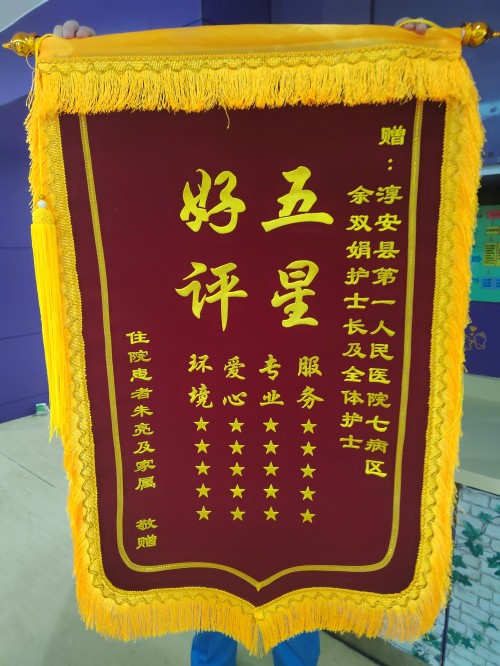 赠：淳安县第一人民医院七病区
余双娟护士长及全体护士
五星
好评
服务★★★★★
专业★★★★★
爱心★★★★★
环境★★★★★
住院患者朱亮及家属 敬赠